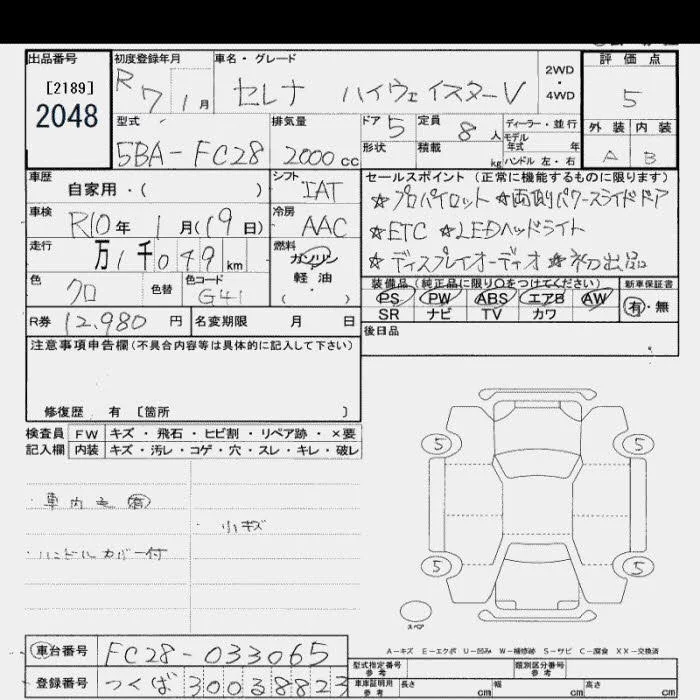 出品番号
[2189]
2048
初度登録年月
R7 1月
車名・グレード
セレナ ハイウェイスターV
2WD
・
4WD
評価点
5
外装 内装
A B
型式
5BA-FC28
排気量
2000cc
ドア 5
定員 8人
ディーラー・並行
モデル
年式 年
形状
積載 kg
ハンドル 左・右
車歴
自家用・( )
シフト
IAT
車検
R10年 1月(19日)
冷房
AAC
走行
万1千049km
燃料
ガソリン
軽油
( )
色
クロ
色替
色コード
G41
R券 12,980円
名変期限 月 日
セールスポイント(正常に機能するものに限ります)
☆プロパイロット ☆両側パワースライドドア
☆ETC ☆LEDヘッドライト
☆ディスプレイオーディオ ☆初出品
装備品(純正品に限り○をつけてください)
PS PW ABS エアB AW
SR ナビ TV カワ
新車保証書
有・無
後日品
注意事項申告欄(不具合内容等は具体的に記入して下さい)
修復歴 有 [箇所 ]
検査員
記入欄
FW キズ・飛石・ヒビ割・リペア跡・×要
内装 キズ・汚レ・コゲ・穴・スレ・キレ・破レ
・ハンドルカバー付
・小キズ
5 5
5 5
スペア
A-キズ E-エクボ U-凹み W-補修跡 S-サビ C-腐食 XX-交換済
車台番号 FC28-033065
登録番号 つくば 300る8823
型式指定番号
参考
類別区分番号
参考
車庫証明用
参考
長さ cm 幅 cm 高さ cm